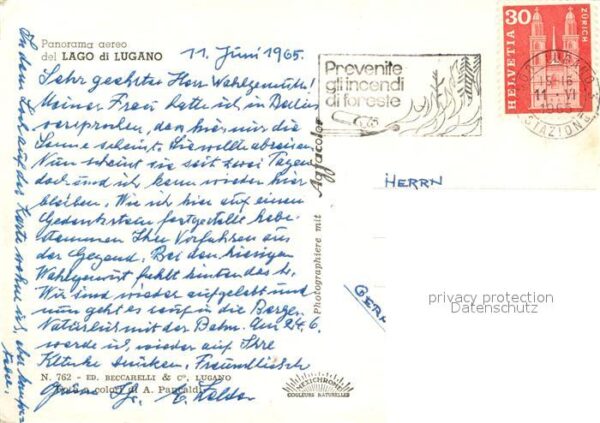 Panorama aereo
del LAGO di LUGANO
11. Juni 1965.
Sehr geehrter Herr Wahlgemuth!
Meiner Frau hatte ich in Berlin
versprochen, dass hier nur die
Sonne scheint. Sie wollte abreisen.
Nun scheint sie seit zwei Tagen
doch und ich kann wieder hier
bleiben. Wie ich hier auf einem
Gedenkstein festgestellt habe
stammen Ihre Vorfahren aus
der Gegend. Bei den hiesigen
fehlt hinten das h.
Wir sind wieder aufgelebt und
nun geht es rauf in die Berge.
Natürlich mit der Bahn. Am 24.6.
werde ich wieder auf Ihre
Klinke drücken. Freundlichst
N. 762 - ED. BECCARELLI & Cº, LUGANO
Foto a colori di A.
Grüsse Ihr
In dem Loch auf der Karte wohne ich, eben
Photographiere mit Agfacolor
MEXICHROME
COULEURS NATURELLES
Prevenite
gli incendi
di foreste
30
HELVETIA
ZÜRICH
11. VI
1965
STAZIONE
HERRN
privacy protection
Datenschutz